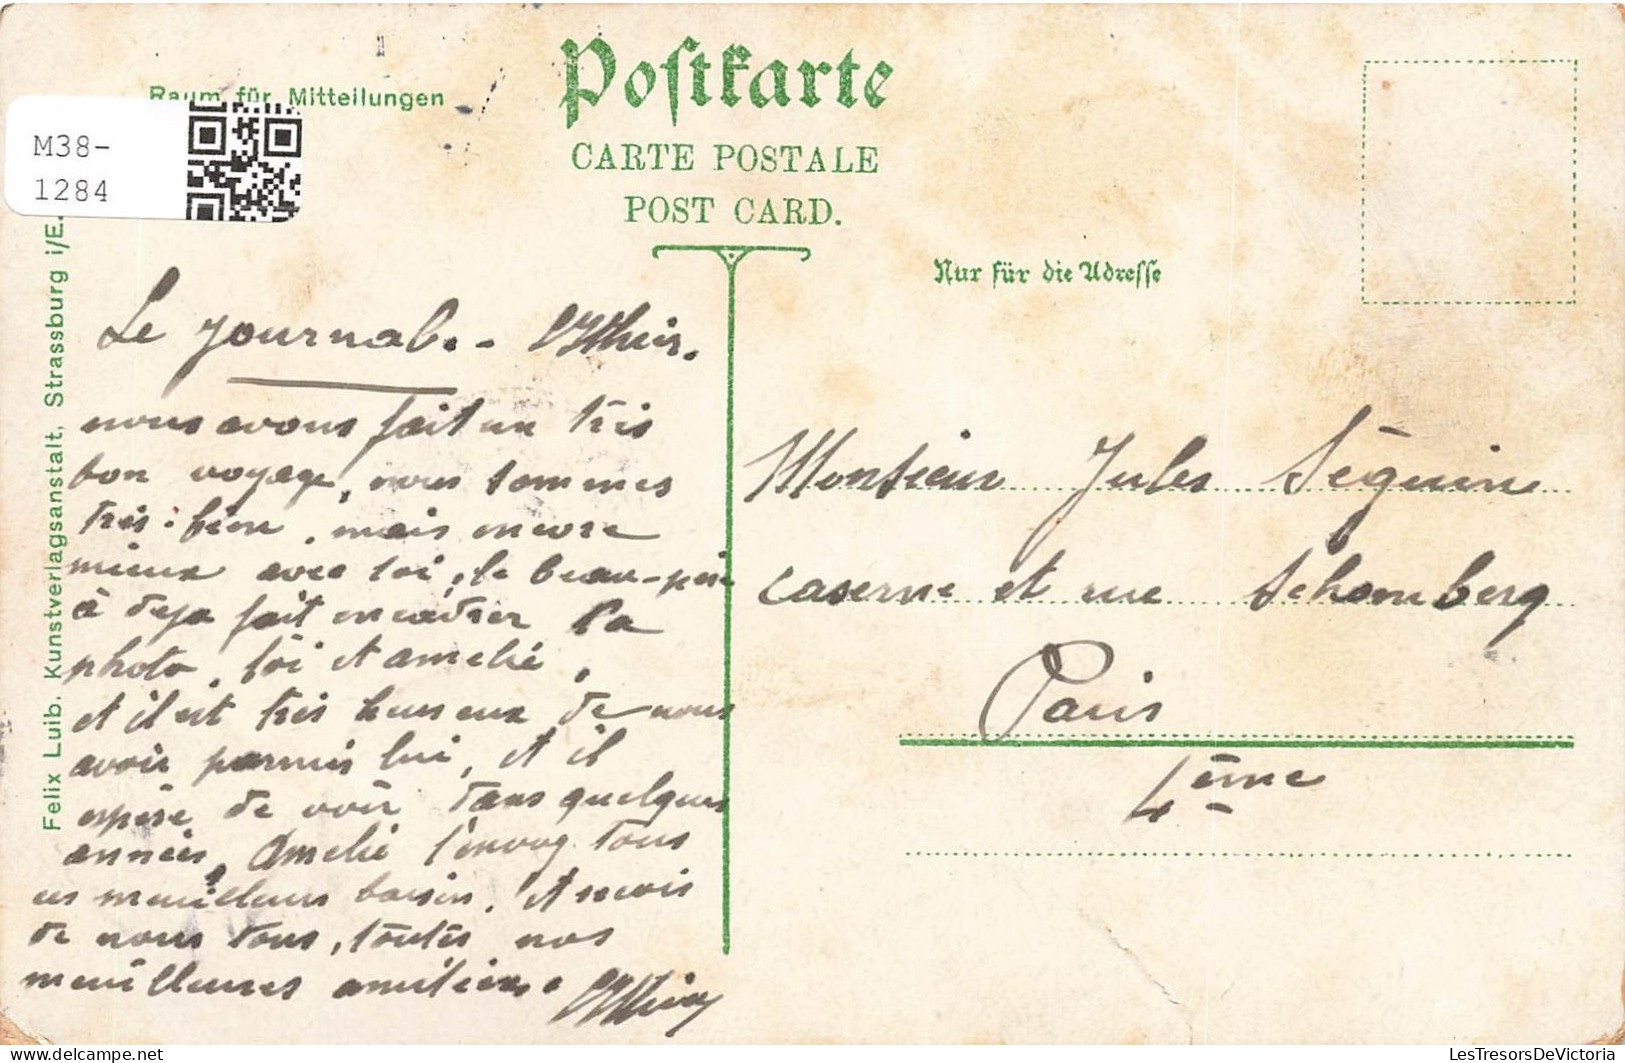 Postkarte
CARTE POSTALE
POST CARD.
Raum für Mitteilungen
M38-
1284
Nur für die Adresse
Felix Luib. Kunstverlagsanstalt, Strassburg i/E.
Le journal. -
nous avons fait un très
bon voyage, nous sommes
très bien, mais encore
mieux avec toi, le beau-père
à deja fait encadrer la
photo, toi et amelie,
et il est très heureux de nous
avoir parmis lui, et il
espère de voir dans quelques
années, Amelie t'envoy tous
ces meilleurs baisers, et reçois
de nous tous, toutes nos
meilleures amitiées.
Monsieur Jules Séguin
caserne et rue Schomberg
Paris
4ème
LesTresorsDeVictoria
delcampe.net